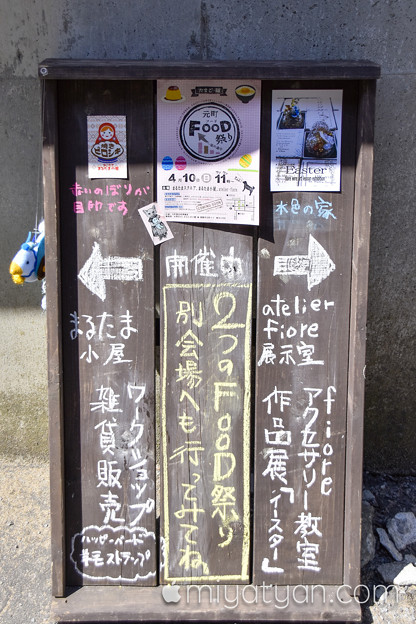 元町
FooD
祭り
4月10日 11日
Easter
赤いのぼりが
目印です
水色の家
開催中
まるたま
小屋
ワークショップ
雑貨販売
ハッピーバード
羊毛ストラップ
2つのFooD祭り
別会場へも行ってみてね
atelier
fiore
展示室
fiore
アクセサリー教室
作品展「イースター」
miyatyan.com